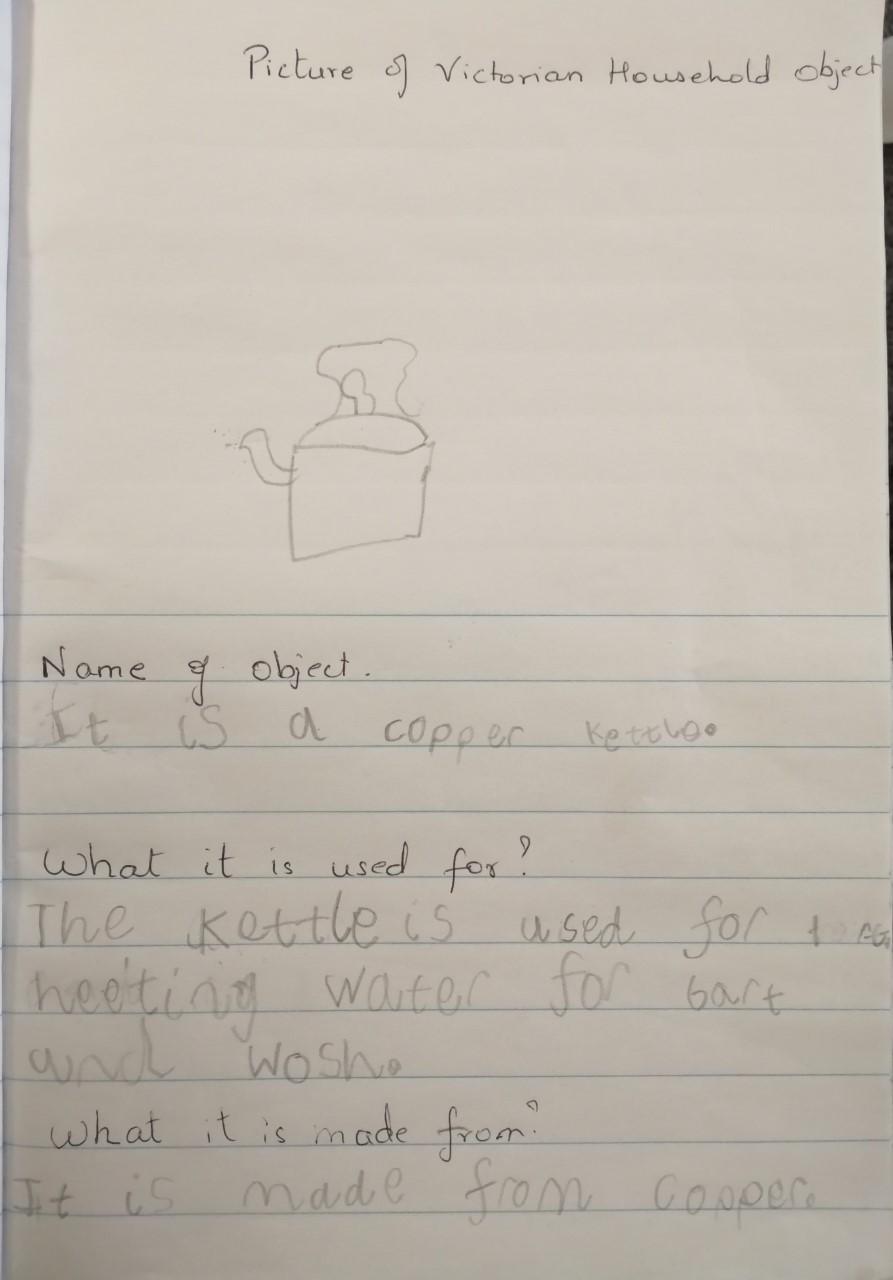 Picture of Victorian Household Object
Name of object.
It is a copper kettle.
What it is used for?
The kettle is used for
heeting water for bart
and wosh.
What it is made from?
It is made from copper.